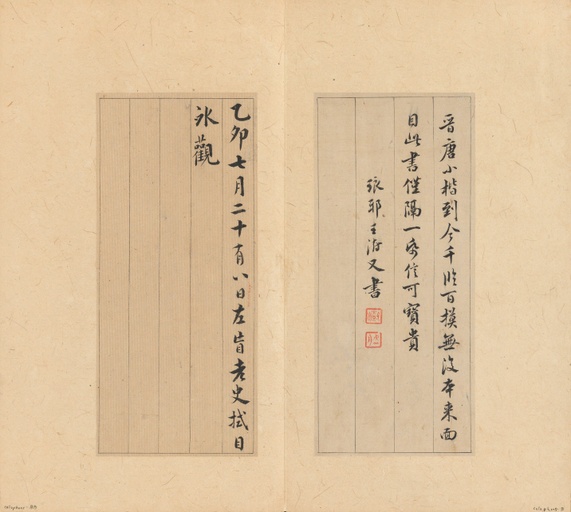 晉唐小楷到今千臨百摸無復本來面
目此書僅隔一帋信可寶貴
琅邪王澍又書
乙卯七月二十有八日左盲老史拭目
氶觀